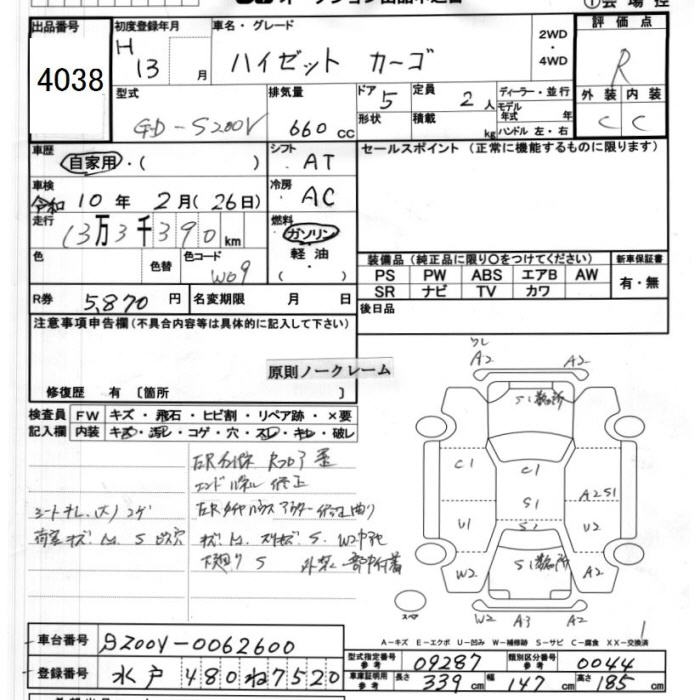 ①会場控
出品番号
4038
初度登録年月
H 13 月
車名・グレード
ハイゼット カーゴ
2WD
・
4WD
評価点
R
外装 内装
C C
型式
GD-S200V
排気量
660 cc
ドア 5
形状
定員 2 人
積載 kg
ディーラー・並行
モデル年式 年
ハンドル 左・右
車歴
自家用・( )
シフト
AT
セールスポイント (正常に機能するものに限ります)
車検
令和 10 年 2 月 (26 日)
冷房
AC
走行
13万3千390 km
燃料
ガソリン
軽油
・
色
色替
色コード
W09
装備品 (純正品に限り○をつけてください)
PS PW ABS エアB AW
SR ナビ TV カワ
新車保証書
有・無
R券 5,870 円
名変期限 月 日
後日品
注意事項申告欄 (不具合内容等は具体的に記入して下さい)
原則ノークレーム
修復歴 有 〔箇所 〕
検査員
記入欄
FW キズ・飛石・ヒビ割・リペア跡・×要
内装 キズ・汚レ・コゲ・穴・スレ・キレ・破レ
シートキレ.(大)コゲ
荷室キズ.M.S ビス穴
エンドパネル 修正
キズ.M.スリキズ.S.W2中古
下廻り S
A2 A2
S1数ヶ所
C1 C1
S1 A2S1
U1 S1 U2
W2 S1数ヶ所 A2
W2 A3 A2
スペア
A-キズ E-エクボ U-凹み W-補修跡 S-サビ C-腐食 XX-交換済
車台番号 S200V-0062600
登録番号 水戸 480 ね 7520
型式指定番号 参考 09287
類別区分番号 参考 0044
車庫証明用 参考 長さ 339 cm 幅 147 cm 高さ 185 cm